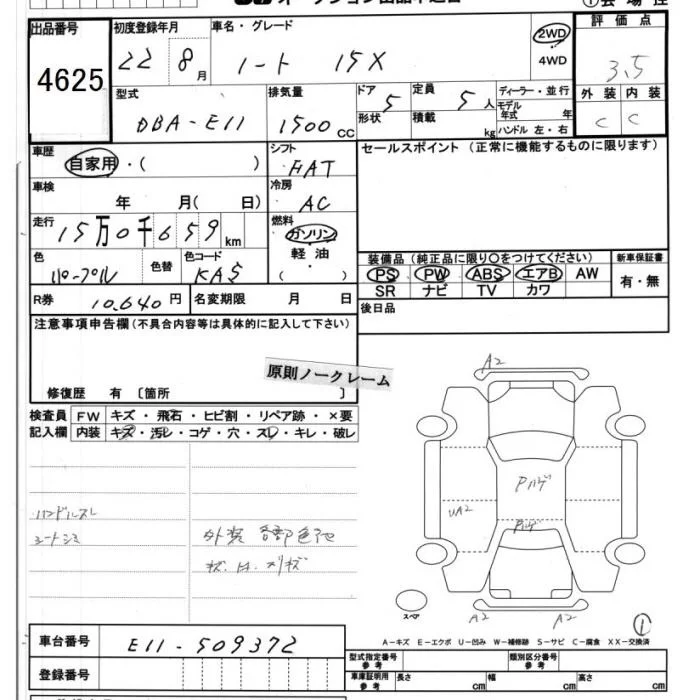 出品番号
4625
初度登録年月
22 8月
車名・グレード
ノート 15X
2WD
4WD
評価点
3.5
外装 内装
C C
型式
DBA-E11
排気量
1500cc
ドア 5
形状
定員 5人
積載 kg
ディーラー・並行
モデル年式 年
ハンドル 左・右
車歴
自家用・( )
シフト
FAT
冷房
AC
車検
年 月( 日)
走行
15万0千659km
燃料
ガソリン
軽油
( )
色
パープル
色替
色コード
KAS
R券 10,640円
名変期限 月 日
セールスポイント (正常に機能するものに限ります)
装備品 (純正品に限り○をつけてください)
新車保証書
PS PW ABS エアB AW
SR ナビ TV カワ
有・無
後日品
注意事項申告欄 (不具合内容等は具体的に記入して下さい)
原則ノークレーム
修復歴 有 〔箇所 〕
検査員記入欄
FW キズ・飛石・ヒビ割・リペア跡・×要
内装 キズ・汚レ・コゲ・穴・スレ・キレ・破レ
ハンドルスレ
シートシミ
外装 各部色アセ
A2
Pハゲ
UA2
Pハゲ
スペア
A2 A2
1
A-キズ E-エクボ U-凹み W-補修跡 S-サビ C-腐食 XX-交換済
車台番号
E11-509372
登録番号
型式指定番号 参考
類別区分番号 参考
車庫証明用 参考
長さ cm
幅 cm
高さ cm